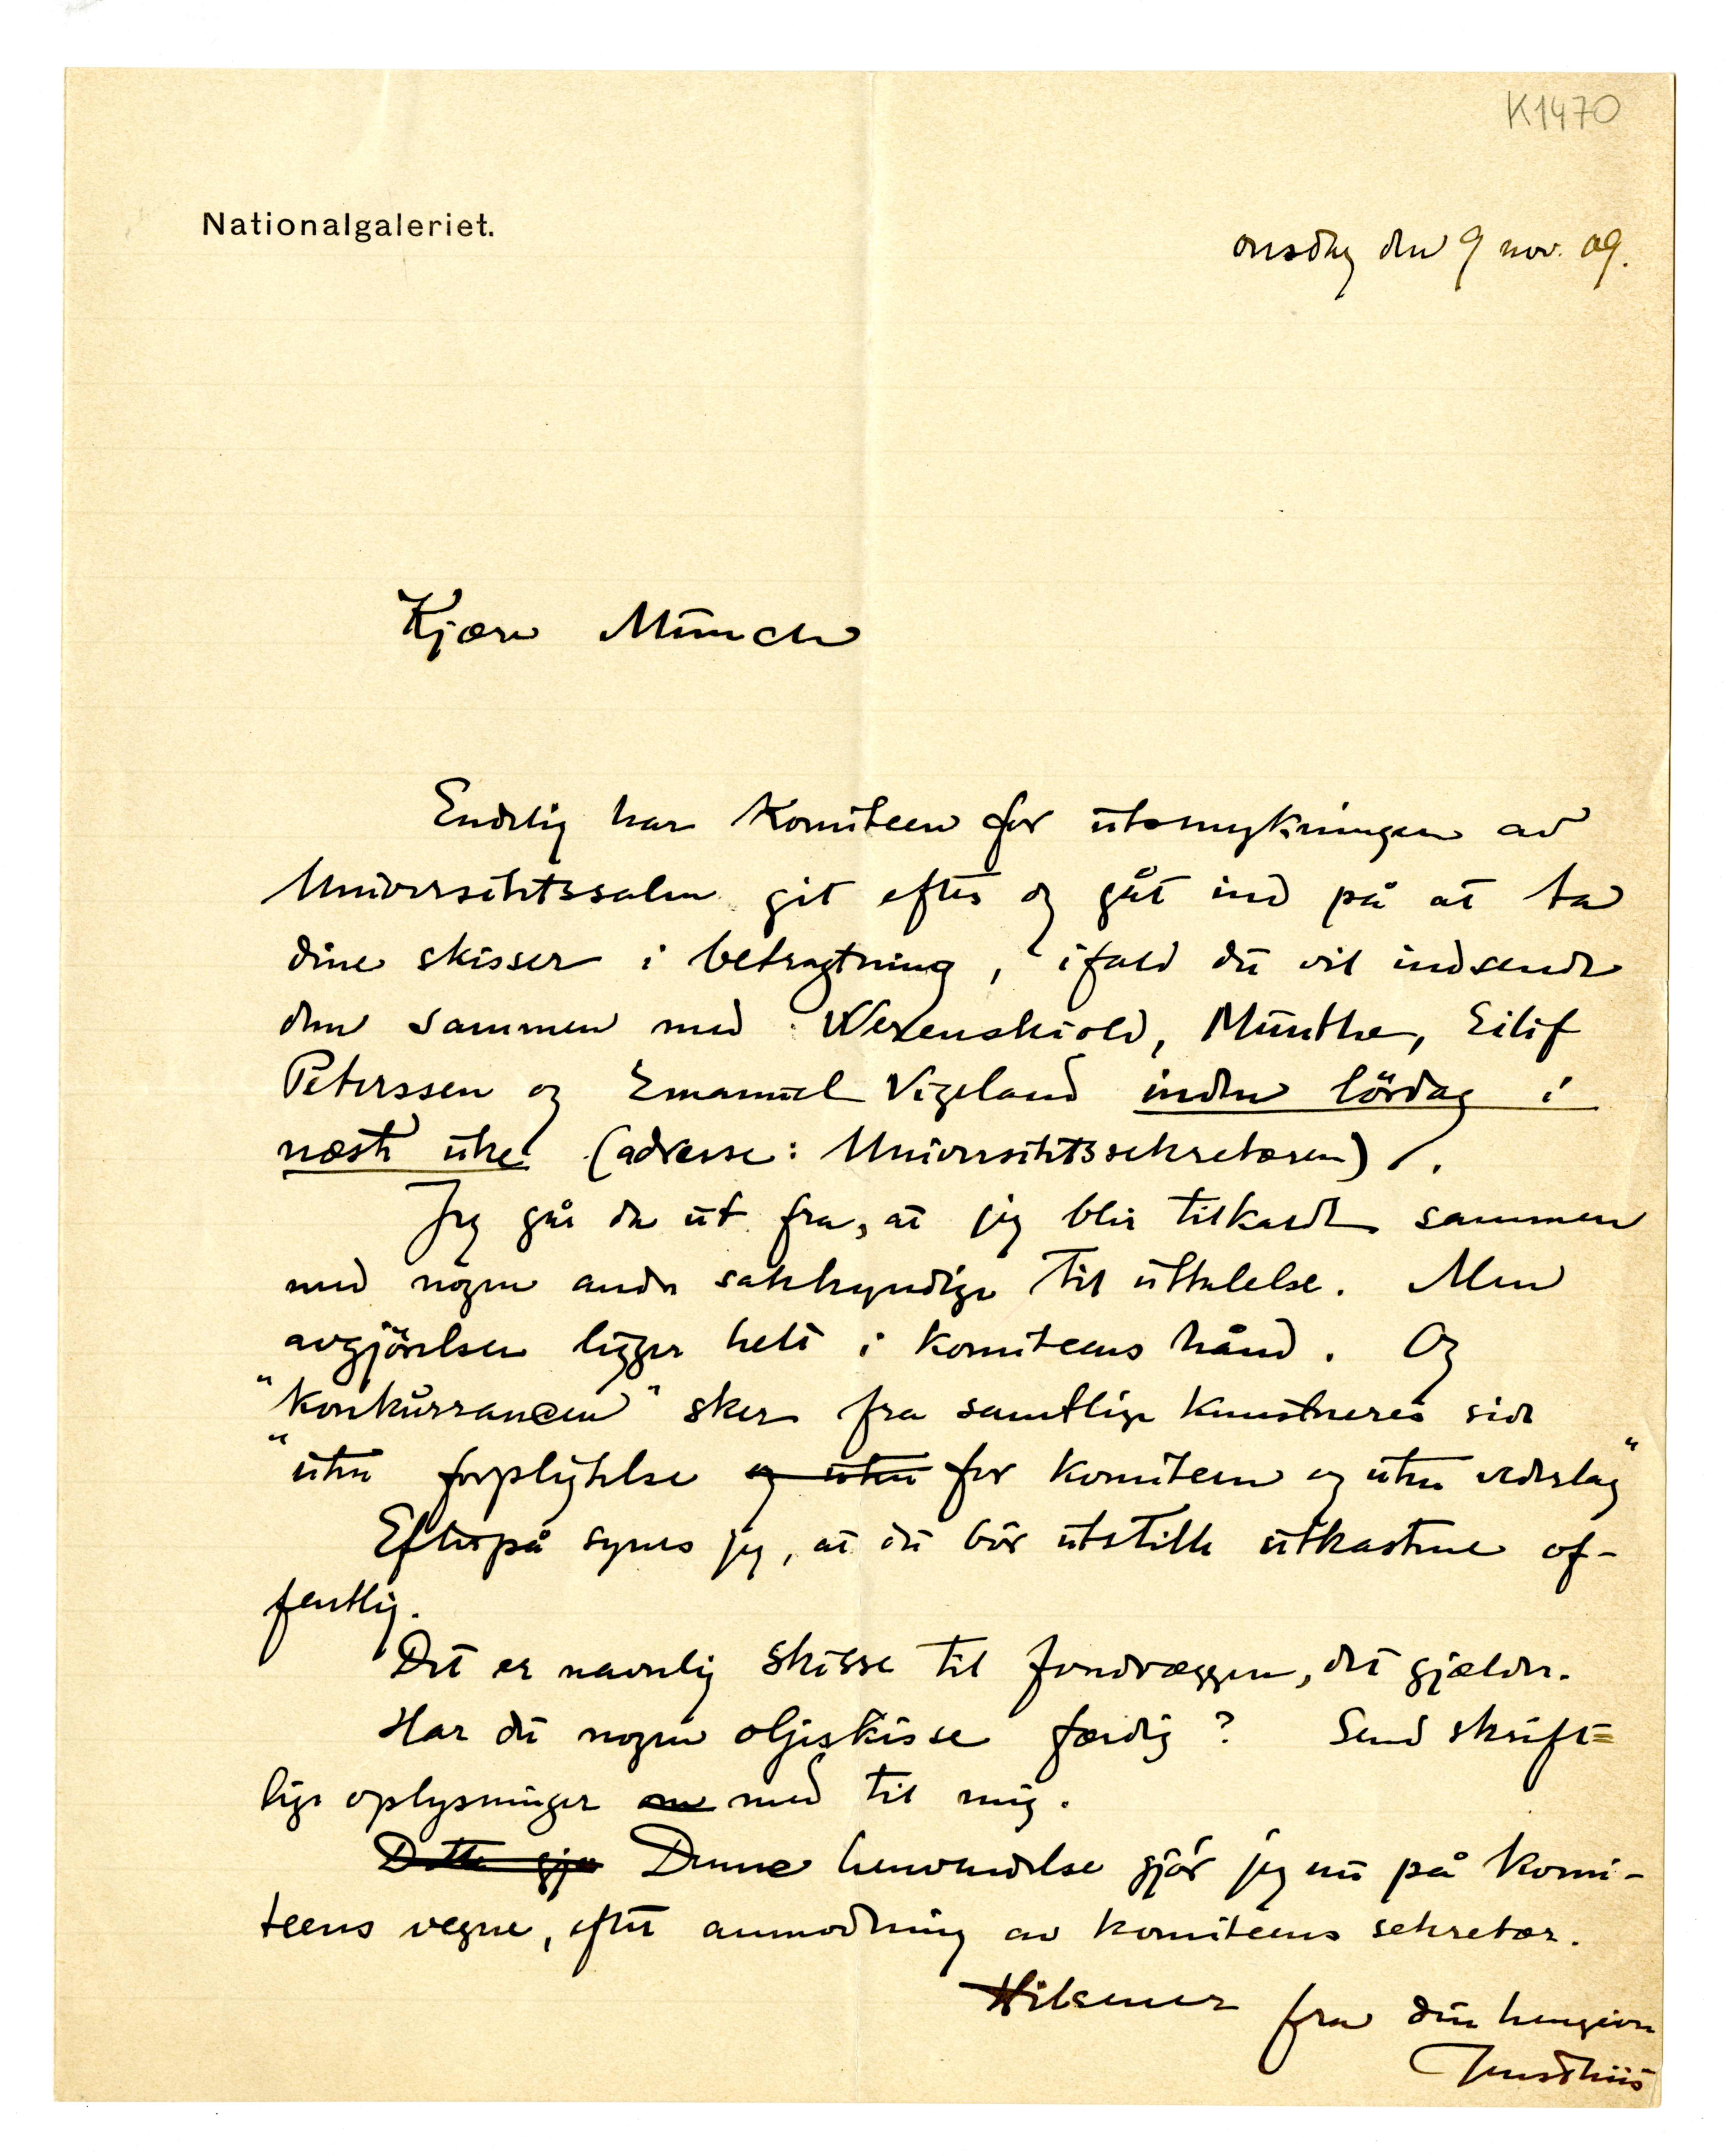 K1470
Nationalgaleriet.
onsdag den 9 nov. 09.
Kjære Münch
Endelig har Komiteen for utsmykningen av
Universitetssalen git efter og gåt ind på at ta
dine skisser i betragtning, ifald du vil indsende
dem sammen med Werenskiold, Munthe, Eilif
Peterssen og Emanuel Vigeland inden lördag i
næste uke (adresse: Universitetssekretæren).
Jeg går da ut fra, at jeg blir tilkaldt sammen
med nogen andre sakkyndige til uttalelse. Men
avgjörelsen ligger helt i komiteens hånd. Og
"konkurrancen" sker fra samtlige kunstneres side
"uten forpligtelse og uten for komiteen og uten vederlag"
Efterpå synes jeg, at du bör utstille utkastene of-
fentlig.
Det er navnlig skisse til fondvæggen, det gjælder.
Har du nogen oljeskisse færdig? Send skrift=
lige oplysninger om med til mig.
Dette gjø Denne henvendelse gjör jeg nu på komi-
teens vegne, efter anmodning av komiteens sekretær.
Hilsener fra din hengivne
Jens Thiis